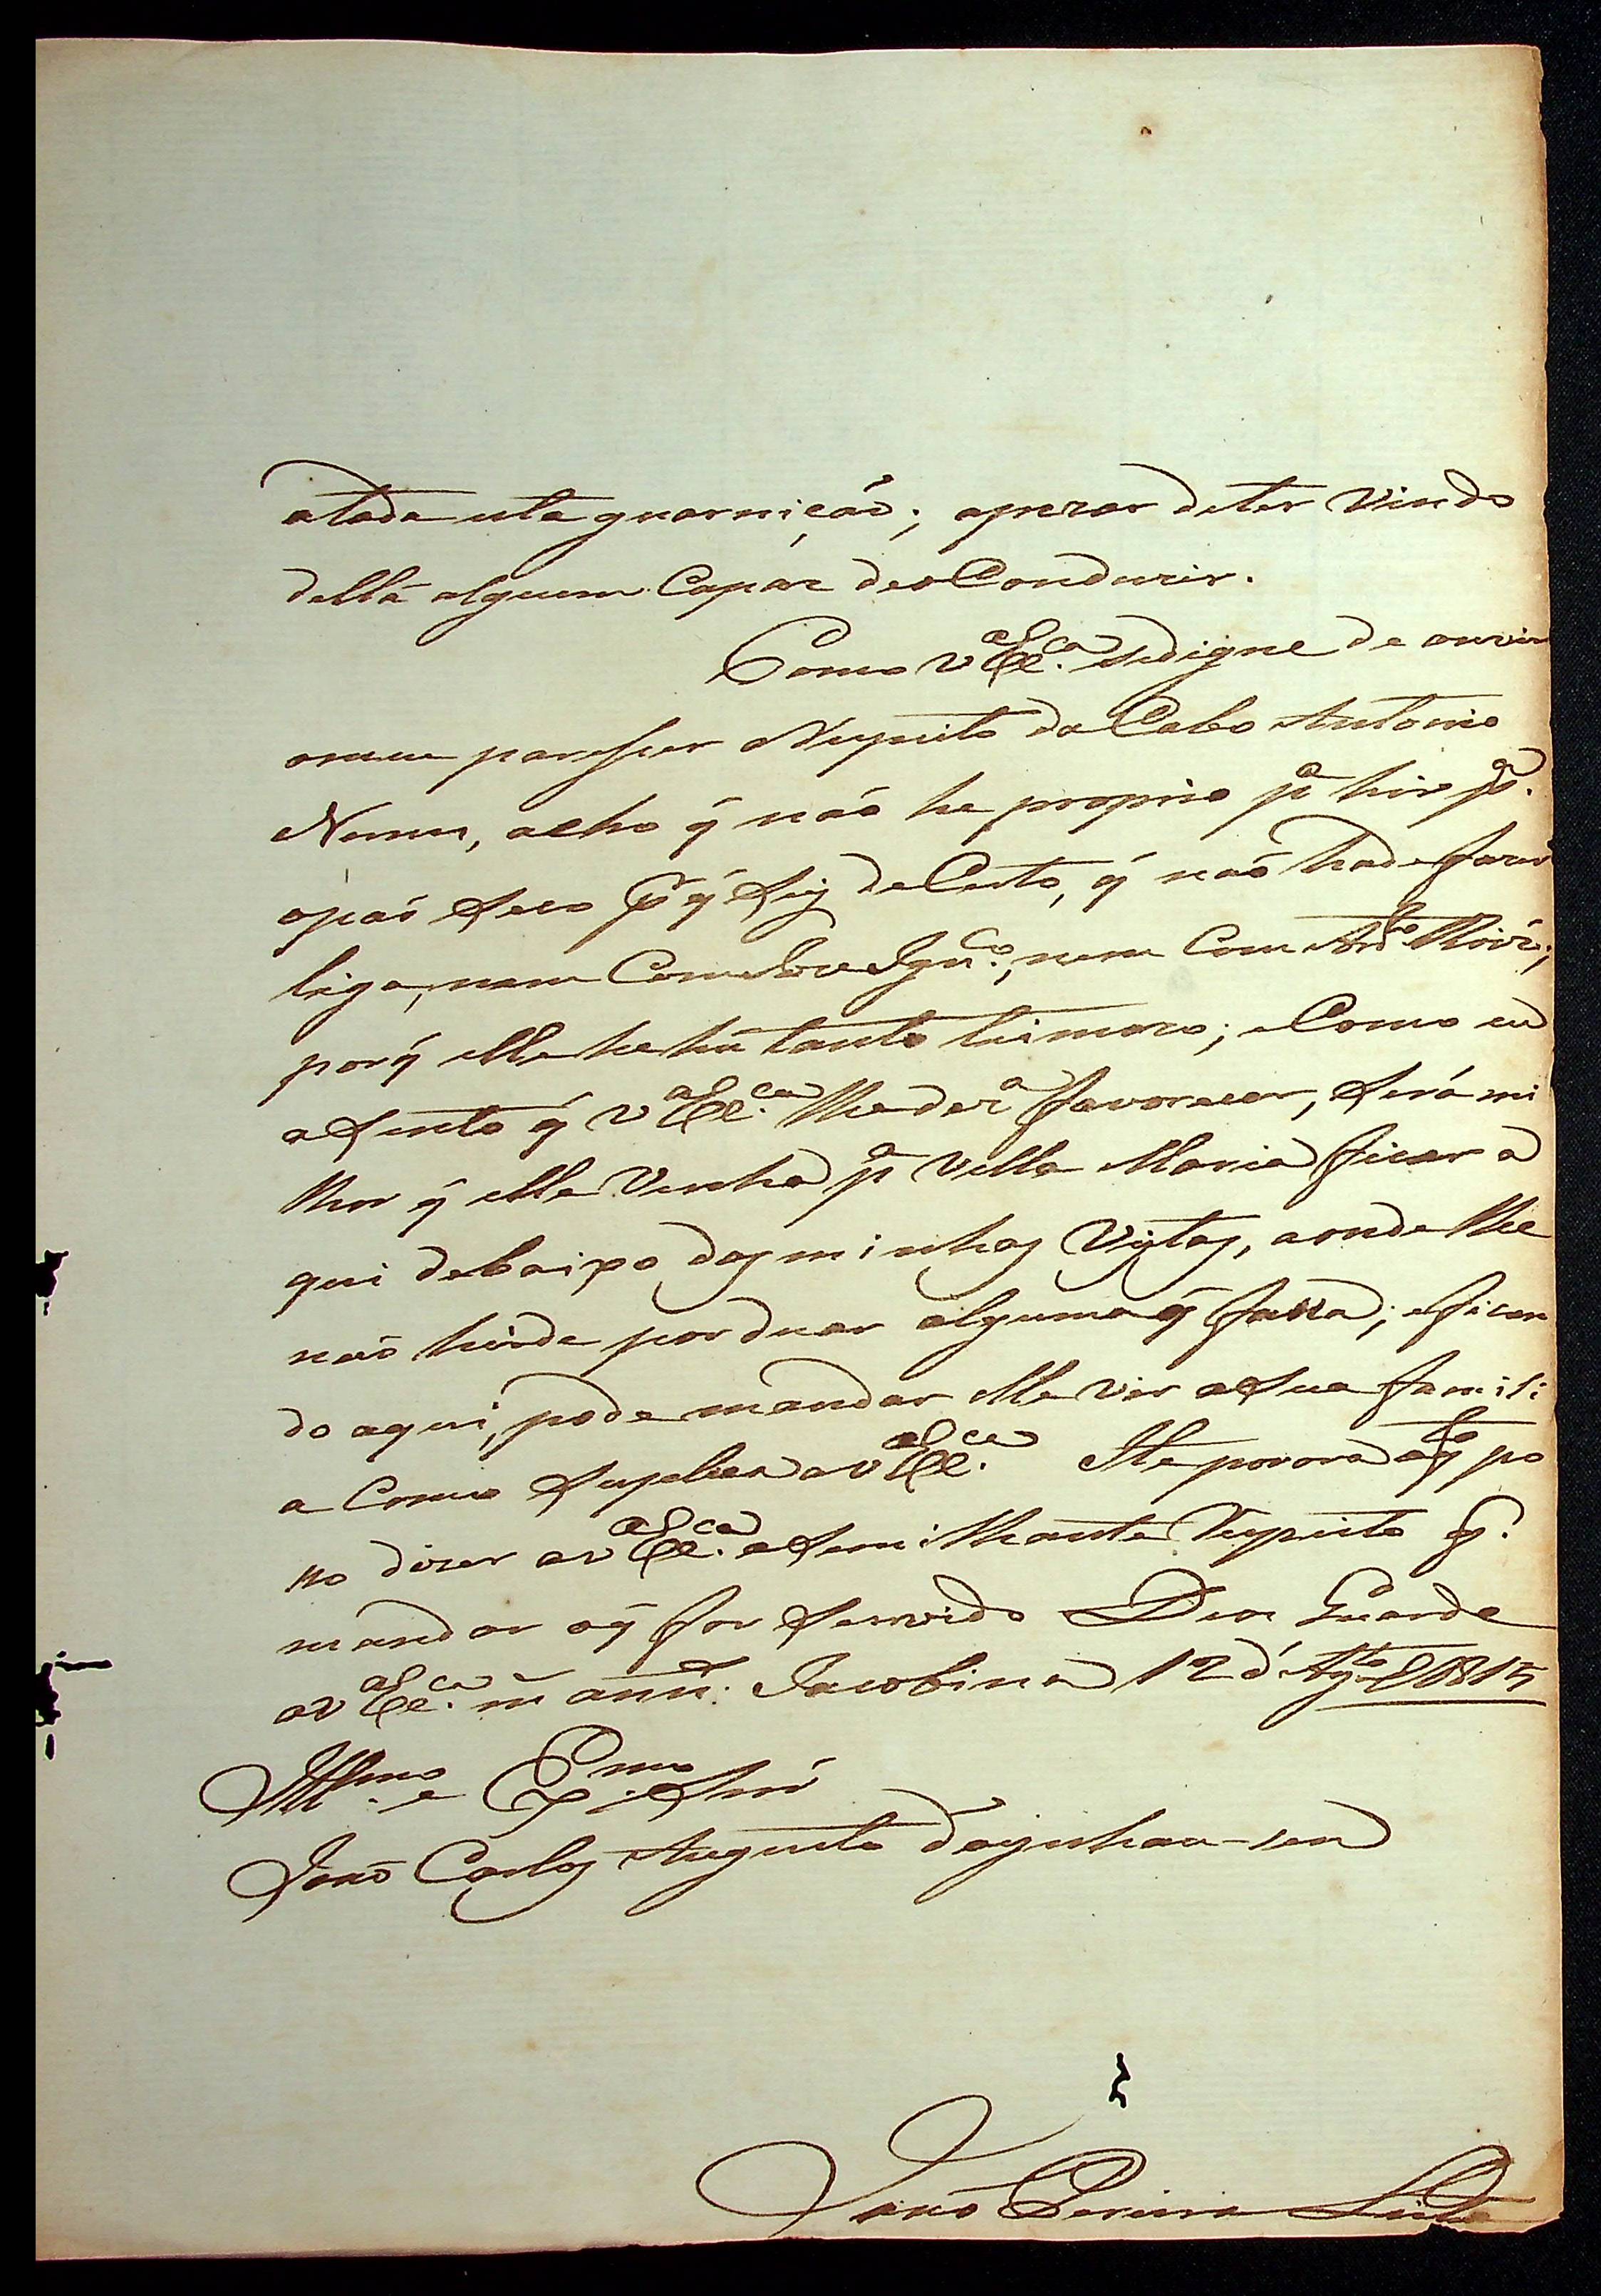 atoda esta guarnicáo; apezar deter vindo
dellá alguem Capáz deo Conduzir.
Como V Exc.ª sedigne de ouvir
omeu paresser Respeito do Cabo Antonio
Nunes, acho q̃ não he proprio pª hir pª.
opaó Seco pr q̃ Sey de Certo, q̃ naó hade fazer
liga, nem Com Joze Ign.co, nem Com Anto
porq̃ elle he hũ tanto teimozo; e Como eu
aSento q̃ V Exc.ca lhe dez.ª favorecer, Será mi
lhor q̃ elle Venha pª Villa Maria ficar a
qui debaixo das minhas Vistas, aonde lhe
não heide perduar alguma q̃ fassa; eficam
do aqui, pode mandar elle vir aSua famili
a Como Suplica a V Exc.ca He por ora oq̃ po
sso dizer a V Exc.ca aSemilhante Respeito q̃.
mandar oq̃ for Servido Deos Guarde
a V Exc.ca m̃ ann.s Jacobina 12 d' Agto d 1815
Illmo. e Exmo. Snr̃
João Carlos Augusto d'oyenhau-sen
João Pereira Leite